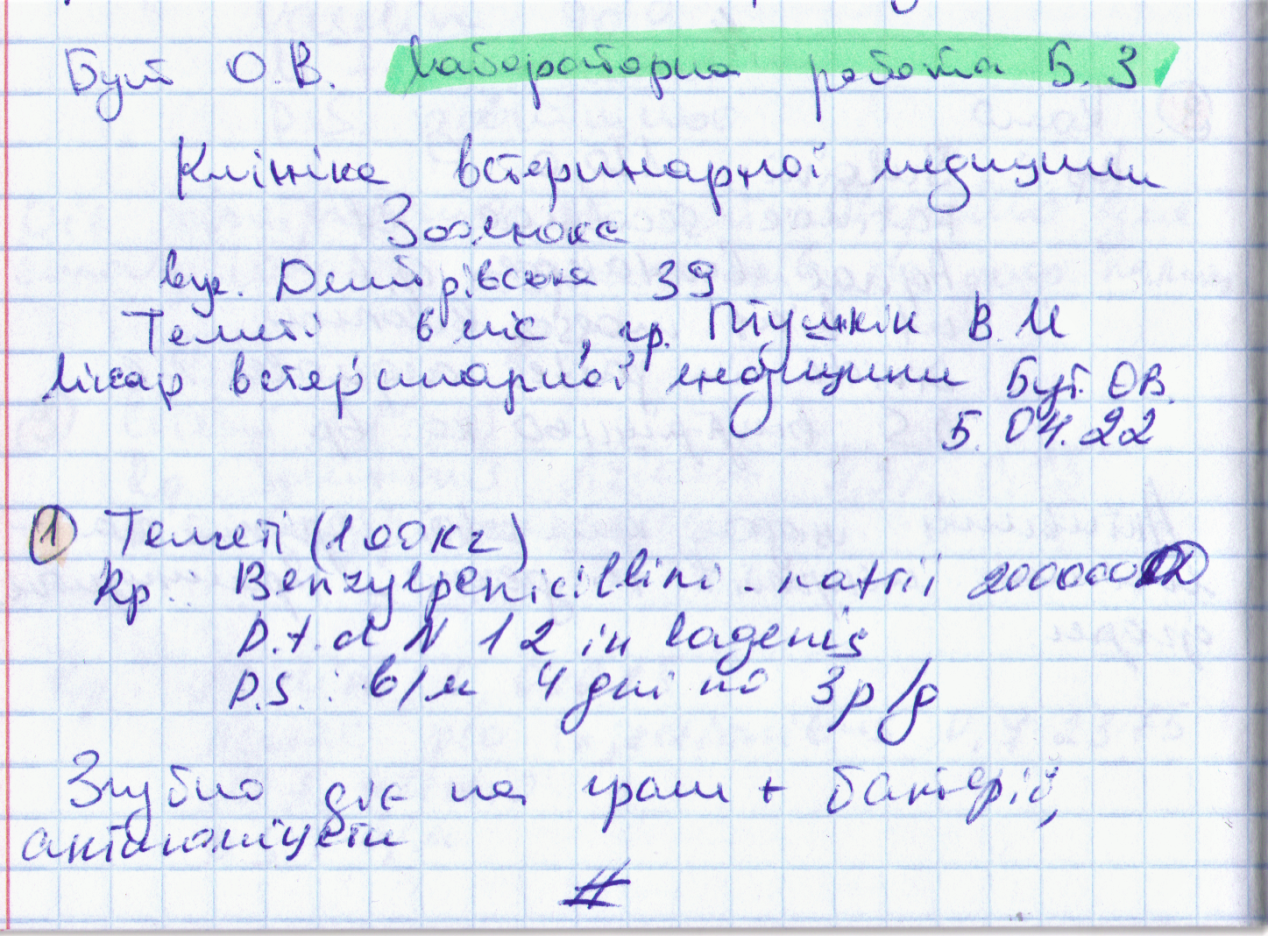 Бут О.В. Лабораторна робота 5.3
Клініка ветеринарної медицини
вул. Дмитрівська 39
Теляті 6 міс, гр. Птушкін В.М
Лікар ветеринарної медицини Бут. О.В.
5.04.22
1 Теляті (100кг)
Rp.: Benzylpenicillini - natrii
D.t.d N 12 in lagenis
D.S.: в/м 4 дні по 3р/д
Згубно діє на грам + бактерії,
актиноміцети
#